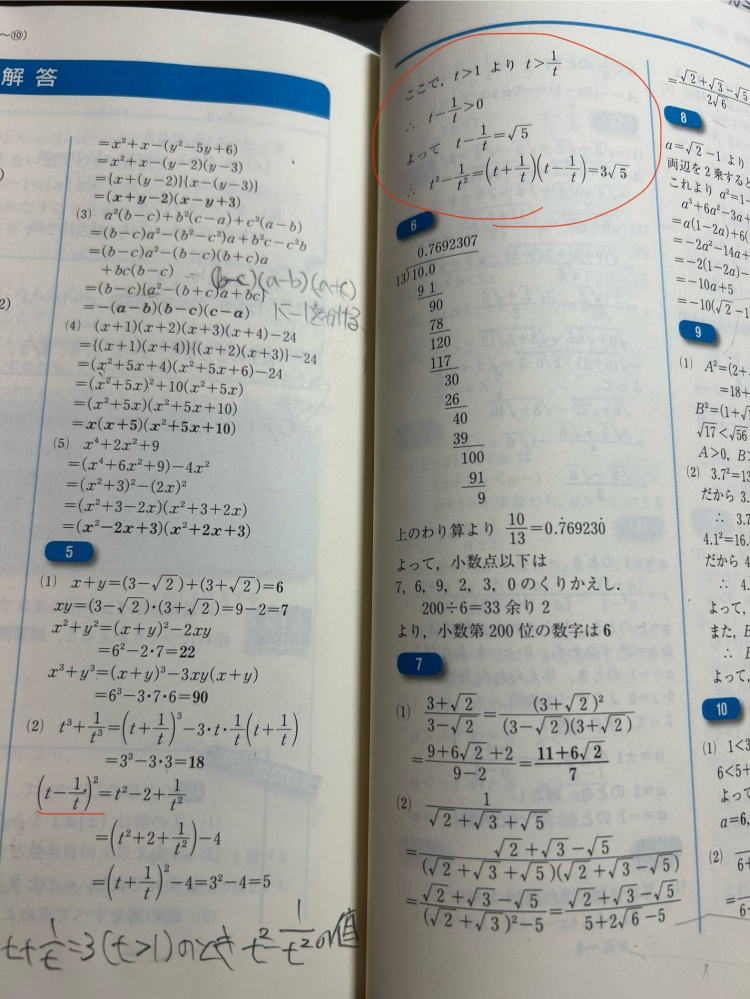 〜⑩)
解答
=x²+x-(y²-5y+6)
=x²+x-(y-2)(y-3)
={x+(y-2)}{x-(y-3)}
=(x+y-2)(x-y+3)
(3) a²(b-c)+b²(c-a)+c²(a-b)
=(b-c)a²-(b²-c²)a+b²c-c²b
=(b-c)a²-(b-c)(b+c)a
+bc(b-c)
=(b-c){a²-(b+c)a+bc}
=-(a-b)(b-c)(c-a)
(4) (x+1)(x+2)(x+3)(x+4)-24
={(x+1)(x+4)}{(x+2)(x+3)}-24
=(x²+5x+4)(x²+5x+6)-24
=(x²+5x)²+10(x²+5x)
=(x²+5x)(x²+5x+10)
=x(x+5)(x²+5x+10)
(5) x⁴+2x²+9
=(x⁴+6x²+9)-4x²
=(x²+3)²-(2x)²
=(x²+3-2x)(x²+3+2x)
=(x²-2x+3)(x²+2x+3)
5
(1) x+y=(3-√2)+(3+√2)=6
xy=(3-√2)・(3+√2)=9-2=7
x²+y²=(x+y)²-2xy
=6²-2・7=22
x³+y³=(x+y)³-3xy(x+y)
=6³-3・7・6=90
(2) t³+1/t³=(t+1/t)³-3・t・1/t(t+1/t)
=3³-3・3=18
(t-1/t)²=t²-2+1/t²
=(t²+2+1/t²)-4
=(t+1/t)²-4=3²-4=5
t+1/t=3(t>1)のとき t²-1/t²の値
ここで, t>1 より t>1/t
∴ t-1/t>0
よって t-1/t=√5
∴ t²-1/t²=(t+1/t)(t-1/t)=3√5
6
0.7692307
13)10.0
9 1
90
78
120
117
30
26
40
39
100
91
9
上のわり算より 10/13=0.7̇69230̇
よって, 小数点以下は
7, 6, 9, 2, 3, 0 のくりかえし.
200÷6=33 余り 2
より, 小数第 200 位の数字は 6
7
(1) (3+√2)/(3-√2)=(3+√2)²/((3-√2)(3+√2))
=(9+6√2+2)/(9-2)=(11+6√2)/7
(2) 1/(√2+√3+√5)
=(√2+√3-√5)/((√2+√3+√5)(√2+√3-√5))
=(√2+√3-√5)/((√2+√3)²-5)=(√2+√3-√5)/(5+2√6-5)
=(√2+√3-√5)/(2√6)
8
a=√2-1 より
両辺を2乗すると
これより a²=1-
a³+6a²-3a+
=a(1-2a)+6(1
=-2a²-14a+
=-2(1-2a)-
=-10a+5
=-10(√2-1
9
(1) A²=(2+
=18+
B²=(1+√
√17<√56
A>0, B>
(2) 3.7²=13
だから 3.
∴ 3.7
4.1²=16.
だから 4
∴ 4.
よって,
また, B
∴ B
よって,
10
(1) 1<3
6<5+
よって
a=6,
(2)